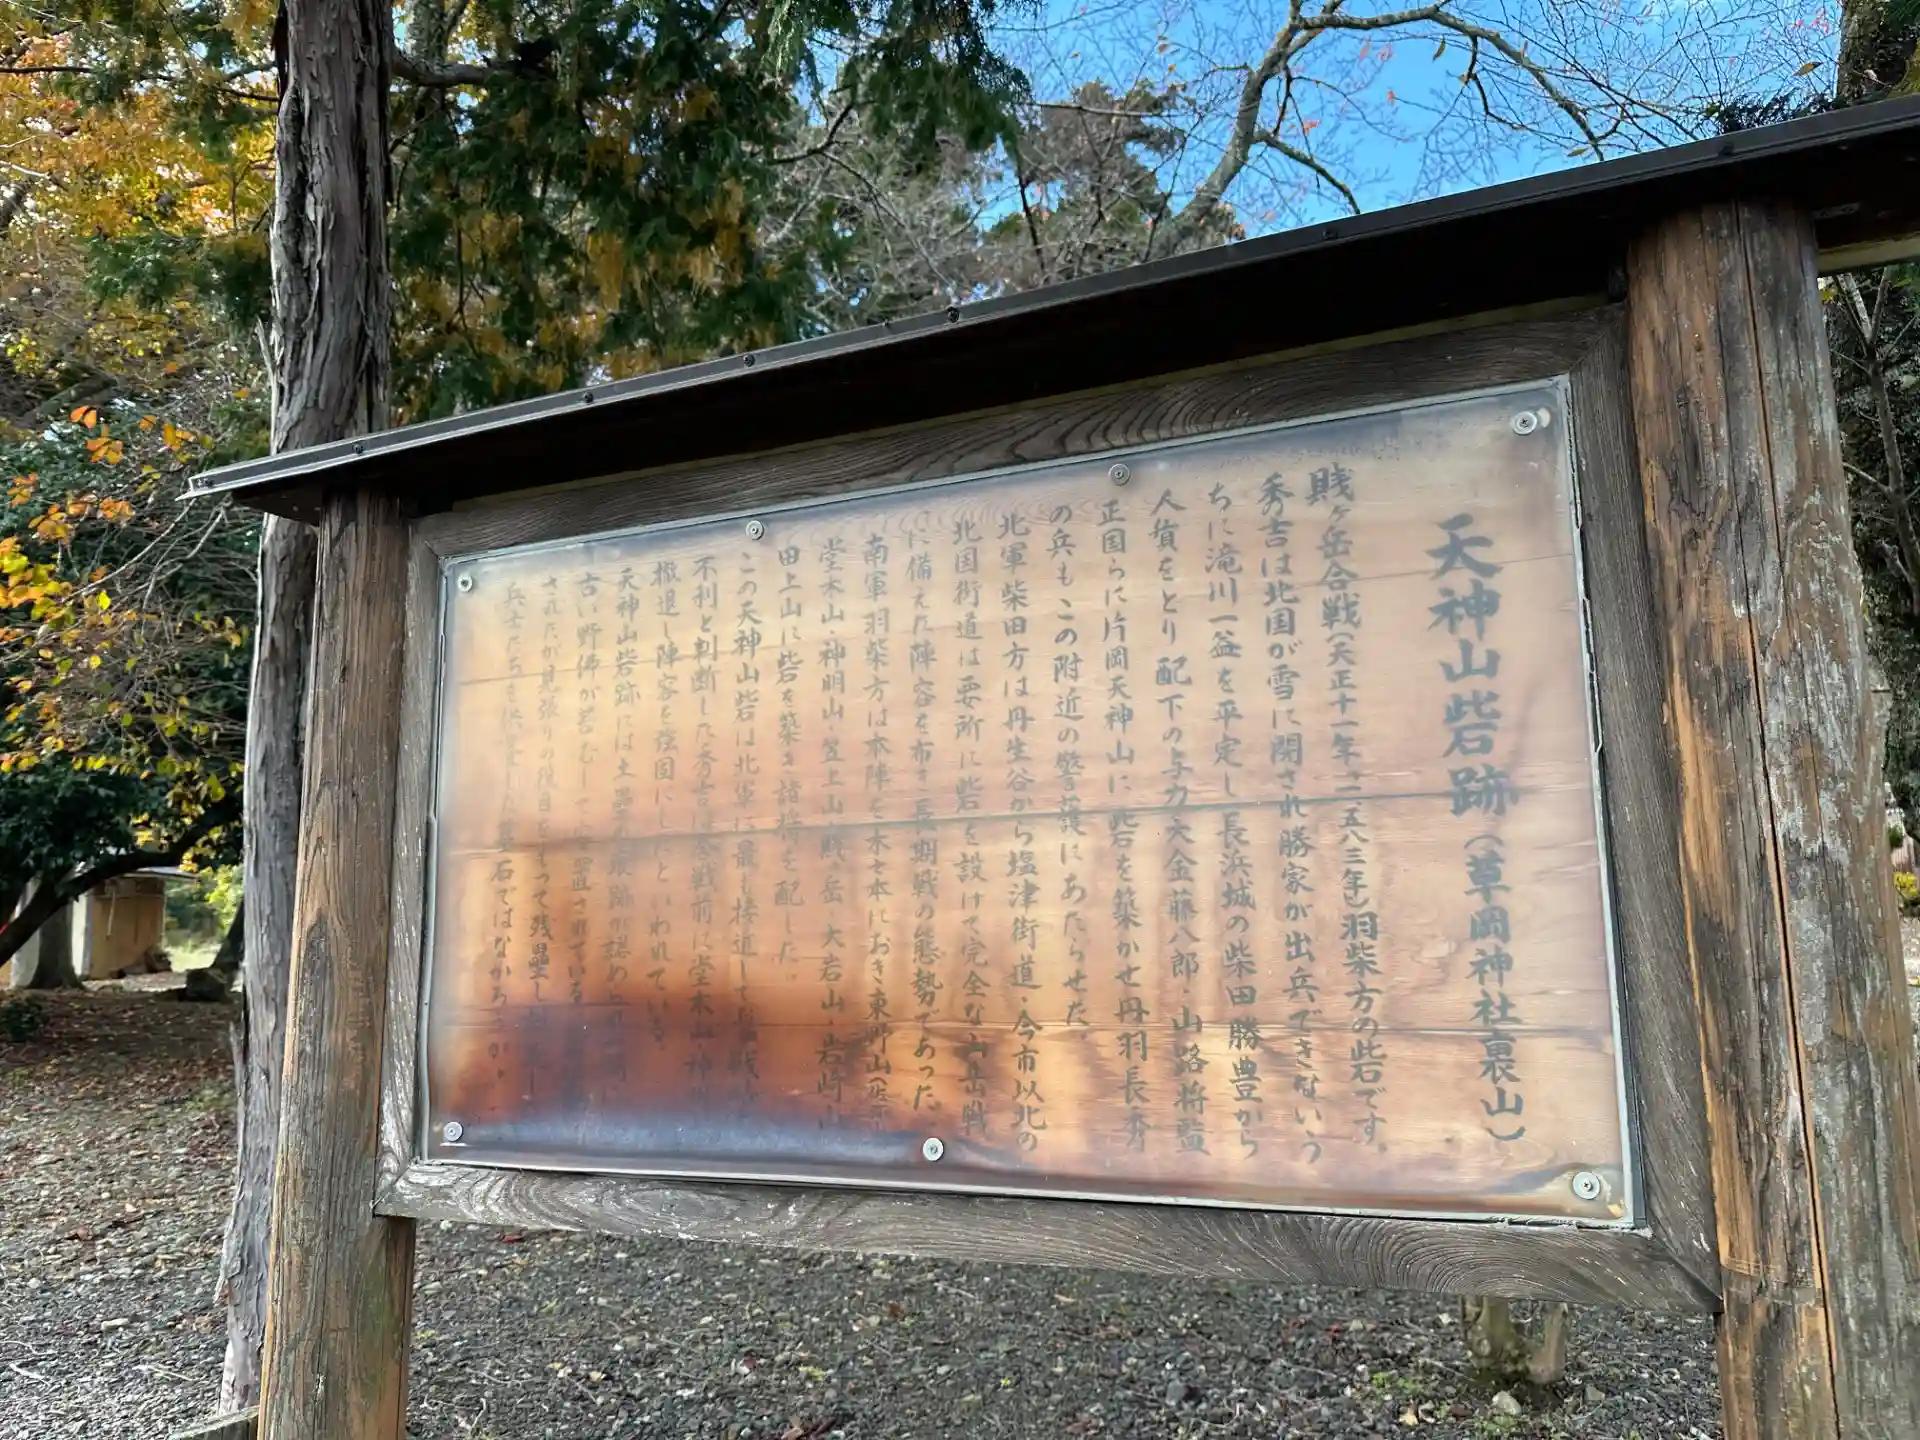 天神山砦跡（草岡神社裏山）
賤ヶ岳合戦（天正十一年・一五八三年）羽柴方の砦です。
秀吉は北国が雪に閉され勝家が出兵できないう
ちに滝川一益を平定し長浜城の柴田勝豊から
人質をとり配下の与力大金藤八郎・山路将監
正国らに片岡天神山に砦を築かせ丹羽長秀
の兵もこの附近の警護にあたらせた。
北軍柴田方は丹生谷から塩津街道・今市以北の
北国街道は要所に砦を設けて完全な山岳戦
に備えた陣容を布き長期戦の態勢であった。
南軍羽柴方は本陣を木之本におき東野山
堂木山・神明山・笠上山・賤ヶ岳・大岩山・岩崎山
田上山に砦を築き諸将を配した。
この天神山砦は北軍に最も接近して
不利と判断した秀吉は合戦前に堂木山・神明
撤退し陣容を強固にしたといわれている。
天神山砦跡には土塁の痕跡が認め
古い野佛が苔むして安置されている
されたが見張りの役目をもって残塁
兵士たちを供養した墓石ではなかろうか。